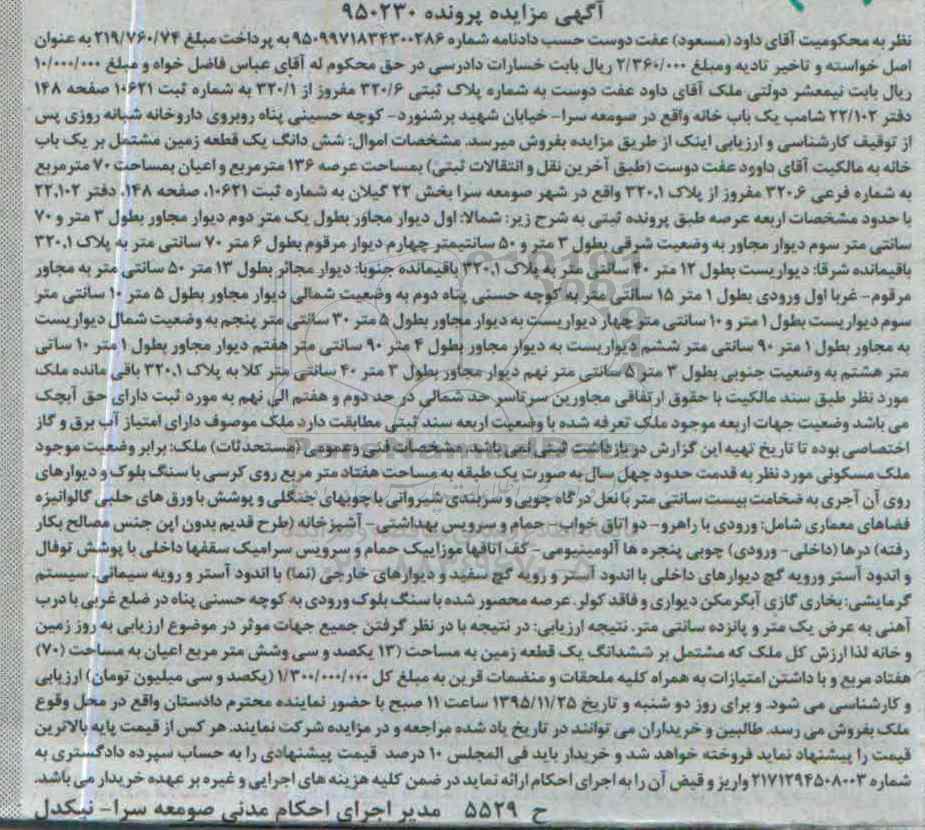 آگهی مزایده پرونده ۹۵۰۲۳۰
نظر به محکومیت آقای داود (مسعود) عفت دوست حسب دادنامه شماره ۹۵۰۹۹۷۱۸۳۴۳۰۰۲۸۶ به پرداخت مبلغ ۲۱۹/۷۶۰/۷۴ به عنوان
اصل خواسته و تاخیر تادیه ومبلغ ۲/۳۶۰/۰۰۰ ریال بابت خسارات دادرسی در حق محکوم له آقای عباس فاضل خواه و مبلغ ۱۰/۰۰۰/۰۰۰
ریال بابت نیمعشر دولتی ملک آقای داود عفت دوست به شماره پلاک ثبتی ۳۲۰/۶ مفروز از ۳۲۰/۱ به شماره ثبت ۱۰۶۲۱ صفحه ۱۴۸
دفتر ۲۲/۱۰۲ شامب یک باب خانه واقع در صومعه سرا- خیابان شهید برشنورد- کوچه حسینی پناه روبروی داروخانه شبانه روزی پس
از توقیف کارشناسی و ارزیابی اینک از طریق مزایده بفروش میرسد. مشخصات اموال: شش دانگ یک قطعه زمین مشتمل بر یک باب
خانه به مالکیت آقای داوود عفت دوست (طبق آخرین نقل و انتقالات ثبتی) بمساحت عرصه ۱۳۶ مترمربع و اعیان بمساحت ۷۰ مترمربع
به شماره فرعی ۳۲۰.۶ مفروز از پلاک ۳۲۰.۱ واقع در شهر صومعه سرا بخش ۲۲ گیلان به شماره ثبت ۱۰۶۲۱، صفحه ۱۴۸، دفتر ۲۲.۱۰۲
با حدود مشخصات اربعه عرصه طبق پرونده ثبتی به شرح زیر: شمالا: اول دیوار مجاور بطول یک متر دوم دیوار مجاور بطول ۳ متر و ۷۰
سانتی متر سوم دیوار مجاور به وضعیت شرقی بطول ۳ متر و ۵۰ سانتیمتر چهارم دیوار مرقوم بطول ۶ متر ۷۰ سانتی متر به پلاک ۳۲۰.۱
باقیمانده شرقا: دیواریست بطول ۱۲ متر ۴۰ سانتی متر به پلاک ۳۲۰.۱ باقیمانده جنوبا: دیوار مجائر بطول ۱۳ متر ۵۰ سانتی متر به مجاور
مرقوم- غربا اول ورودی بطول ۱ متر ۱۵ سانتی متر به کوچه حسنی پناه دوم به وضعیت شمالی دیوار مجاور بطول ۵ متر ۱۰ سانتی متر
سوم دیواریست بطول ۱ متر و ۱۰ سانتی متر چهار دیواریست به دیوار مجاور بطول ۵ متر ۳۰ سانتی متر پنجم به وضعیت شمال دیواریست
به مجاور بطول ۱ متر ۹۰ سانتی متر ششم دیواریست به دیوار مجاور بطول ۴ متر ۹۰ سانتی متر هفتم دیوار مجاور بطول ۱ متر ۱۰ ساتی
متر هشتم به وضعیت جنوبی بطول ۳ متر ۵ سانتی متر نهم دیوار مجاور بطول ۳ متر ۴۰ سانتی متر کلا به پلاک ۳۲۰.۱ باقی مانده ملک
مورد نظر طبق سند مالکیت با حقوق ارتفاقی مجاورین سرتاسر حد شمالی در حد دوم و هفتم الی نهم به مورد ثبت دارای حق آبچک
می باشد وضعیت جهات اربعه موجود ملک تعرفه شده با وضعیت اربعه سند ثبتی مطابقت دارد ملک موصوف دارای امتیاز آب برق و گاز
اختصاصی بوده تا تاریخ تهیه این گزارش در بازداشت ثبتی نمی باشد. مشخصات فنی و عمومی (مستحدثات) ملک: برابر وضعیت موجود
ملک مسکونی مورد نظر به قدمت حدود چهل سال به صورت یک طبقه به مساحت هفتاد متر مربع روی کرسی با سنگ بلوک و دیوارهای
روی آن آجری به ضخامت بیست سانتی متر با نعل درگاه چوبی و سربندی شیروانی با چوبهای جنگلی و پوشش با ورق های حلبی گالوانیزه
فضاهای معماری شامل: ورودی با راهرو- دو اتاق خواب- حمام و سرویس بهداشتی- آشپزخانه (طرح قدیم بدون این جنس مصالح بکار
رفته) درها (داخلی- ورودی) چوبی پنجره ها آلومینیومی- کف اتاقها موزاییک حمام و سرویس سرامیک سقفها داخلی با پوشش توفال
و اندود آستر ورویه گچ دیوارهای داخلی با اندود آستر و رویه گچ سفید و دیوارهای خارجی (نما) با اندود آستر و رویه سیمانی. سیستم
گرمایشی: بخاری گازی آبگرمکن دیواری و فاقد کولر. عرصه محصور شده با سنگ بلوک ورودی به کوچه حسنی پناه در ضلع غربی با درب
آهنی به عرض یک متر و پانزده سانتی متر. نتیجه ارزیابی: در نتیجه با در نظر گرفتن جمیع جهات موثر در موضوع ارزیابی به روز زمین
و خانه لذا ارزش کل ملک که مشتمل بر ششدانگ یک قطعه زمین به مساحت (۱۳ یکصد و سی وشش متر مربع اعیان به مساحت (۷۰)
هفتاد مربع و با داشتن امتیازات به همراه کلیه ملحقات و منضمات قرین به مبلغ کل ۱/۳۰۰/۰۰۰/۰۰۰ (یکصد و سی میلیون تومان) ارزیابی
و کارشناسی می شود. و برای روز دو شنبه و تاریخ ۱۳۹۵/۱۱/۲۵ ساعت ۱۱ صبح با حضور نماینده محترم دادستان واقع در محل وقوع
ملک بفروش می رسد. طالبین و خریداران می توانند در تاریخ یاد شده مراجعه و در مزایده شرکت نمایند. هر کس از قیمت پایه بالاترین
قیمت را پیشنهاد نماید فروخته خواهد شد و خریدار باید فی المجلس ۱۰ درصد قیمت پیشنهادی را به حساب سپرده دادگستری به
شماره ۲۱۷۱۲۹۴۵۰۸۰۰۳ واریز و قبض آن را به اجرای احکام ارائه نماید در ضمن کلیه هزینه های اجرایی و غیره بر عهده خریدار می باشد.
ح ۵۵۲۹ مدیر اجرای احکام مدنی صومعه سرا- نیکدل